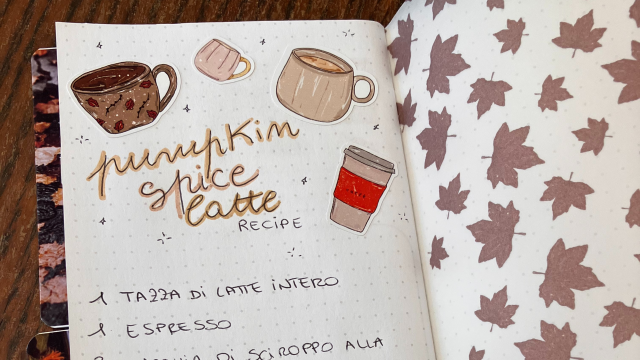 pumpkin
spice
latte
RECIPE
1 TAZZA DI LATTE INTERO
1 ESPRESSO
DI SCIROPPO ALLA